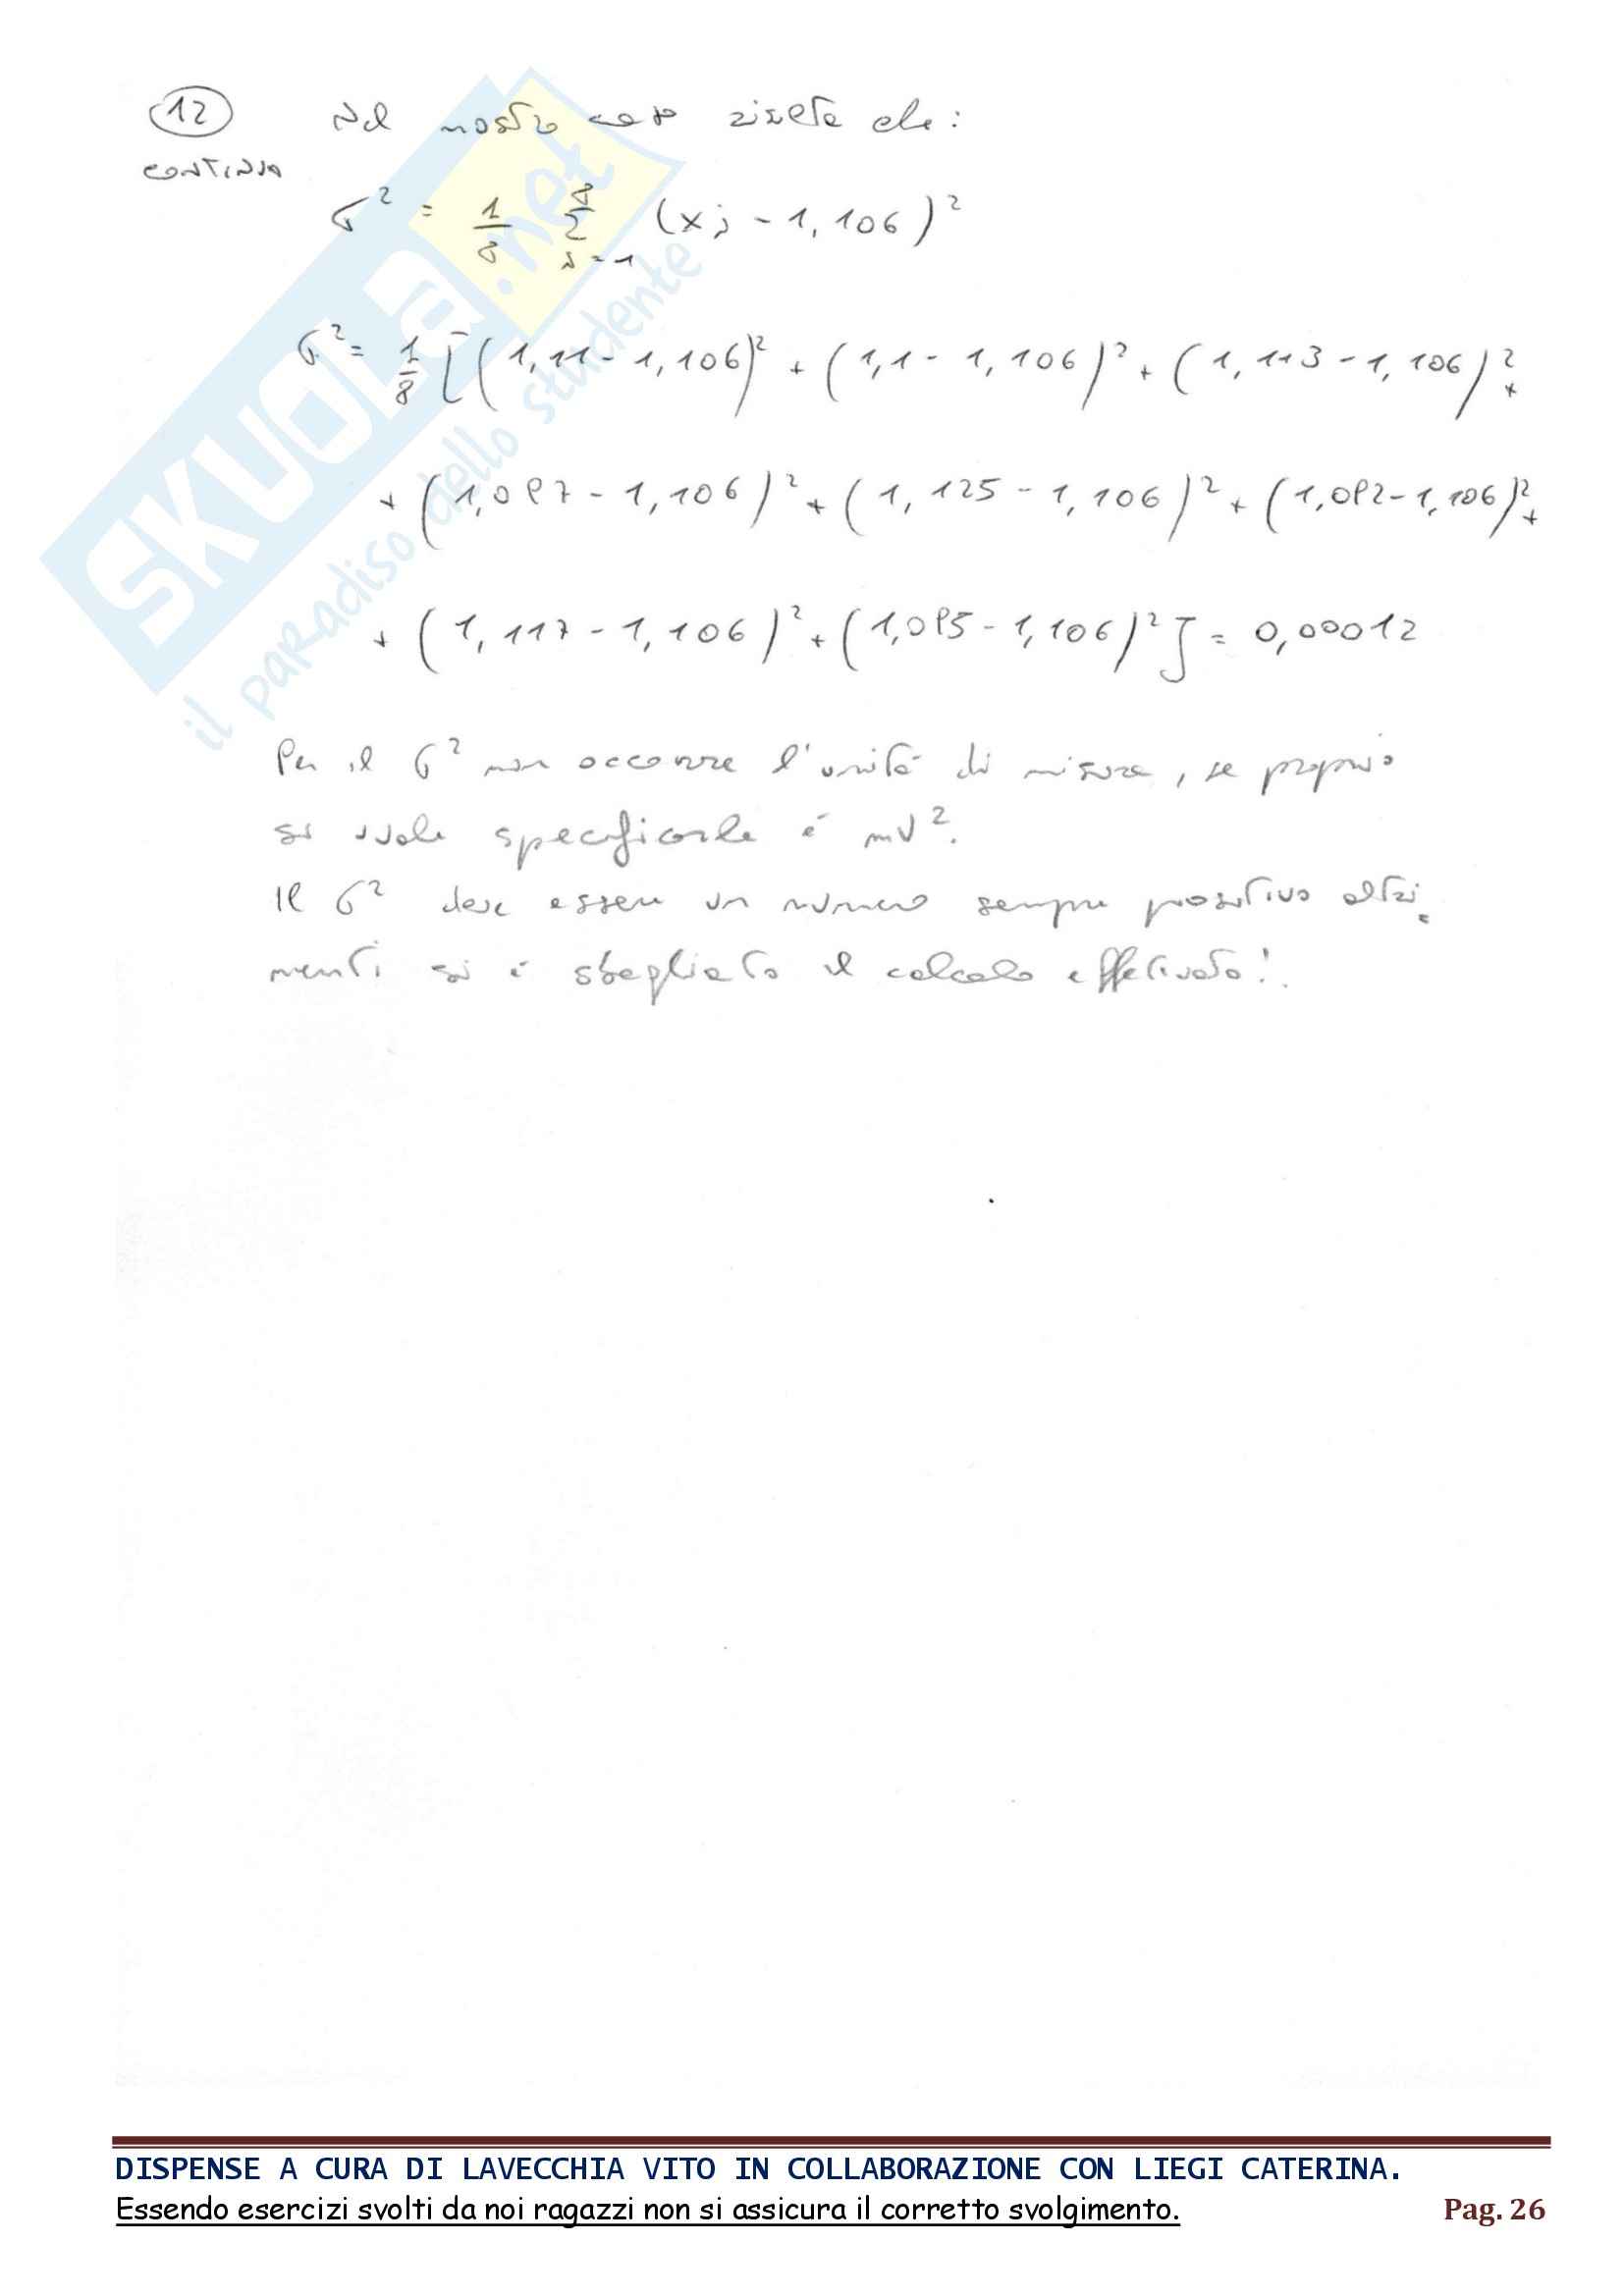 12 Nel nostro caso risulta che:
continua
σ² = 1/8 8Σj=1 (xj - 1,106)²
σ² = 1/8 [(1,11 - 1,106)² + (1,1 - 1,106)² + (1,113 - 1,106)² +
+ (1,097 - 1,106)² + (1,125 - 1,106)² + (1,092 - 1,106)² +
+ (1,117 - 1,106)² + (1,095 - 1,106)²] = 0,00012
Per il σ² non occorre l'unità di misura, se proprio
si vuole specificarle è mV².
Il σ² deve essere un numero sempre positivo altri-
menti si è sbagliato il calcolo effettuato!
SKUOLA.net
il paradiso dello studente
DISPENSE A CURA DI LAVECCHIA VITO IN COLLABORAZIONE CON LIEGI CATERINA.
Essendo esercizi svolti da noi ragazzi non si assicura il corretto svolgimento. Pag. 26